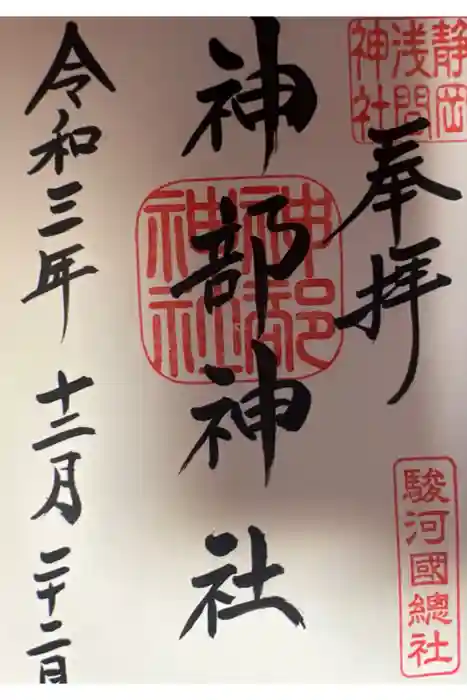 静岡
浅間
神社
奉拝
駿河國總社
神部神社
神部
神社
令和三年 十二月 二十二日